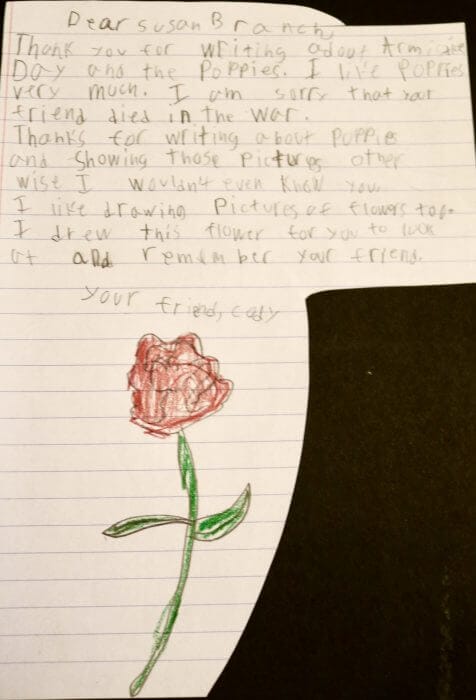 Dear susan Branch,
Thank you for writing adout Armistice
Day and the Poppies. I live POPPies
very much. I am sorry that your
friend died in the war.
Thanks for writing about puppies
and showing those Pictures other
wise I wouldn't even know you.
I like drawing Pictures of flowers too.
I drew this flower for you to look
at and remember your friend.
your friend, cady